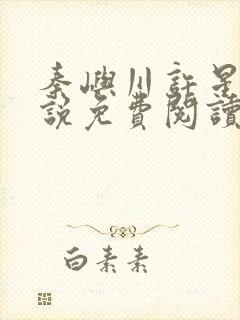 秦嶼川許是
說免費閱讀
白素素